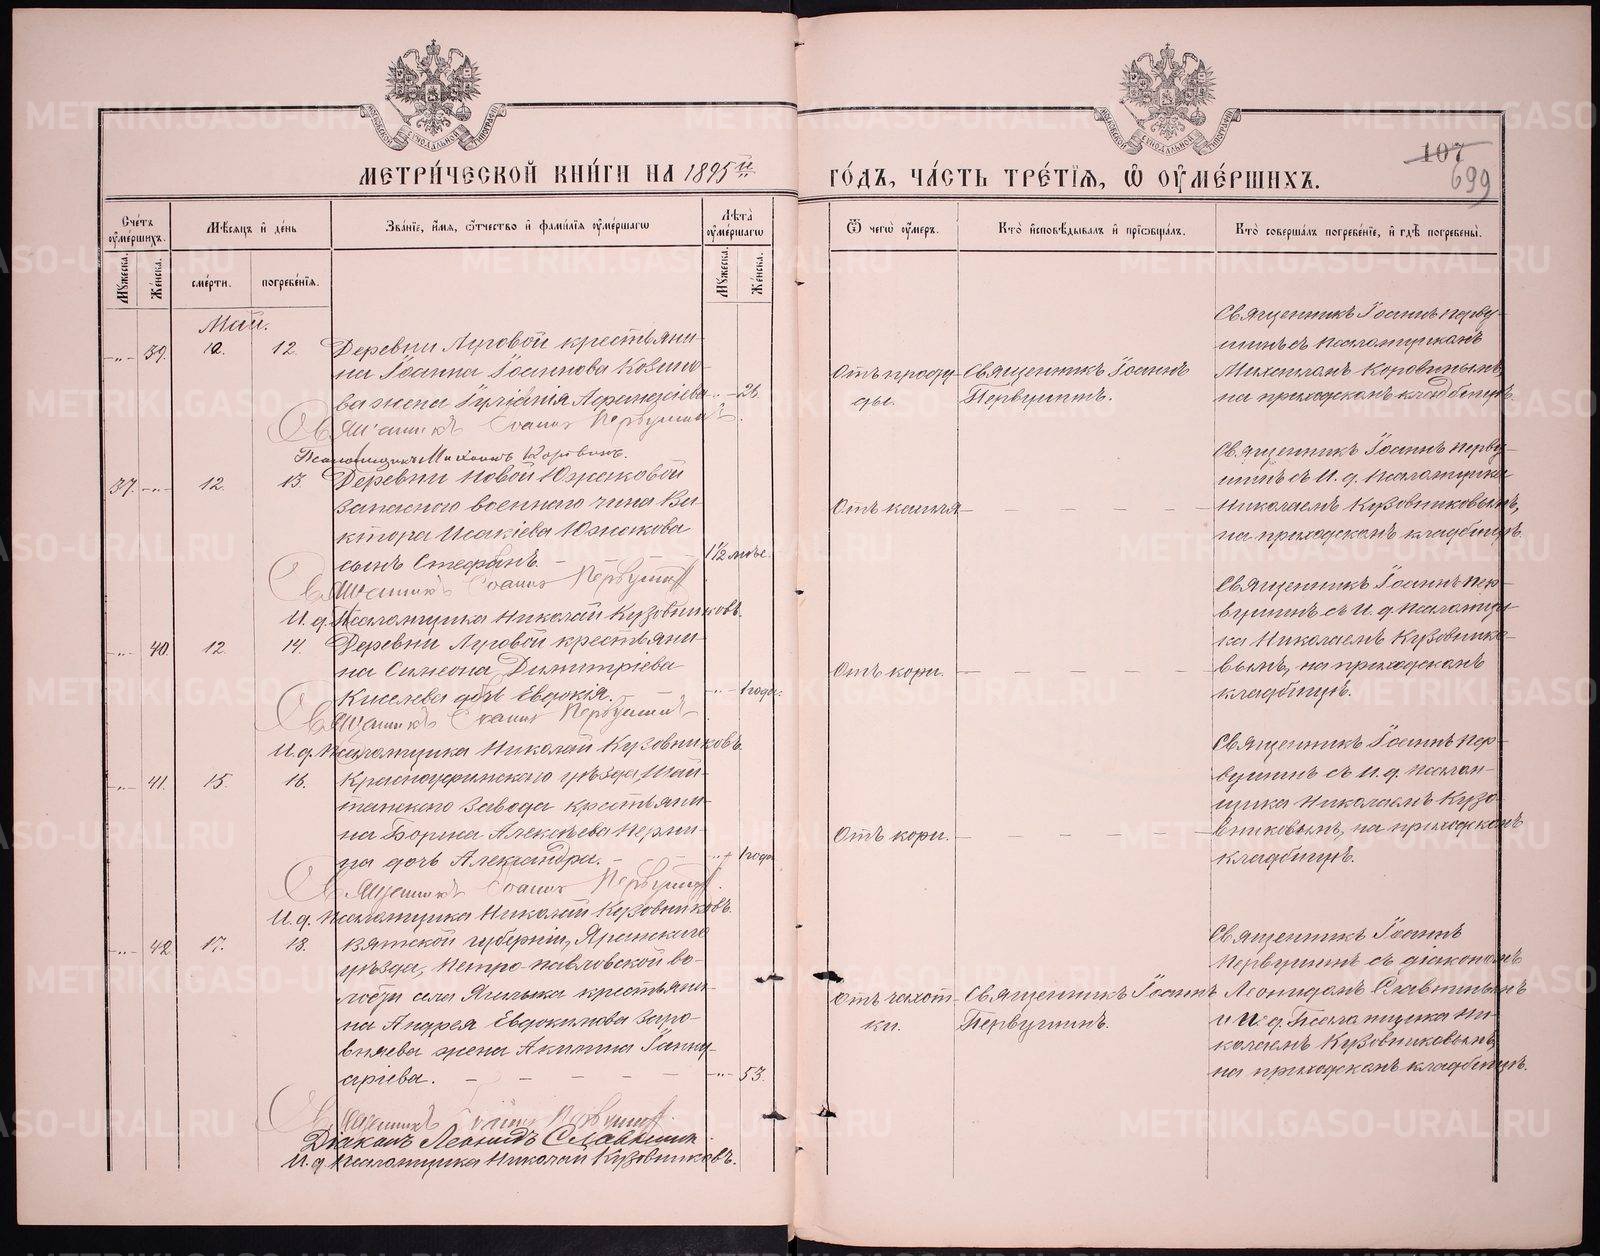 МЕТРИ́ЧЕСКОЙ КНИ́ГИ НА 1895й
ГО́ДЪ, ЧА́СТЬ ТРЕ́ТЇЯ, Ѡ ОУМЕ́РШИХЪ.
107
699
Сче́тъ оуме́ршихъ.
Мѣ́сяцъ и де́нь
Зва́нїе, и́мя, ѻ́тчество и фами́лїя оуме́ршагѡ
Лѣта̀ оуме́ршагѡ
Ѿ чегѡ̀ оу́меръ.
Кто̀ исповѣ́дывалъ и прїѻбща́лъ.
Кто̀ соверша́лъ погребе́нїе, и гдѣ̀ погребены̀.
Му́жеска.
Же́нска.
сме́рти.
погребе́нїя.
Му́жеска.
Же́нска.
Май.
-„- 39. 12. 12.
Деревни Луговой крестьяни-
на Іоанна Іоаннова
жена -„- 26.
Священникъ Іоаннъ Первушинъ
Псаломщикъ Михаилъ Коровинъ.
Отъ просту-
ды.
Священникъ Іоаннъ
Первушинъ.
Священникъ Іоаннъ Перву-
шинъ съ псаломщикомъ
Михаиломъ Коровинымъ,
на приходскомъ кладбищѣ.
37. -„- 12. 13.
Деревни Новой Южаковой
запаснаго военнаго чина Ви-
ктора Исакіева Южакова
сынъ Стефанъ. 1 1/2 мѣс.
Священникъ Іоаннъ Первушинъ
И. д. Псаломщика Николай Кузовниковъ.
Отъ кашля
Священникъ Іоаннъ Перву-
шинъ съ И. д. Псаломщика
Николаемъ Кузовниковымъ,
на приходскомъ кладбищѣ.
-„- 40. 12. 14.
Деревни Луговой крестьяни-
на Симеона Димитріева
Киселева дочь Евдокія. -„- 1 года.
Священникъ Іоаннъ Первушинъ
И. д. Псаломщика Николай Кузовниковъ.
Отъ кори.
Священникъ Іоаннъ Пер-
вушинъ съ И. д. Псаломщи-
ка Николаемъ Кузовнико-
вымъ, на приходскомъ
кладбищѣ.
-„- 41. 15. 16.
Красноуфимскаго уѣзда Шай-
танскаго завода крестьяни-
на Бориса Алексѣева
дочь Александра. -„- 1 года.
Священникъ Іоаннъ Первушинъ
И. д. Псаломщика Николай Кузовниковъ.
Отъ кори.
Священникъ Іоаннъ Пер-
вушинъ съ И. д. Псалом-
щика Николаемъ Кузо-
вниковымъ, на приходскомъ
кладбищѣ.
-„- 42. 17. 18.
Вятской губерніи, Яранскаго
уѣзда, Петро-Павловской во-
лости села крестьяни-
на Андрея Евдокимова
жена Акилина Іанну-
аріева. -„- 53.
Священникъ Іоаннъ Первушинъ
Діаконъ Леонидъ Славнинъ.
И. д. Псаломщика Николай Кузовниковъ.
Отъ чахот-
ки.
Священникъ Іоаннъ
Первушинъ.
Священникъ Іоаннъ
Первушинъ съ діакономъ
Леонидомъ Славнинымъ
и И. д. Псаломщика Ни-
колаемъ Кузовниковымъ,
на приходскомъ кладбищѣ.
METRIKI.GASO-URAL.RU